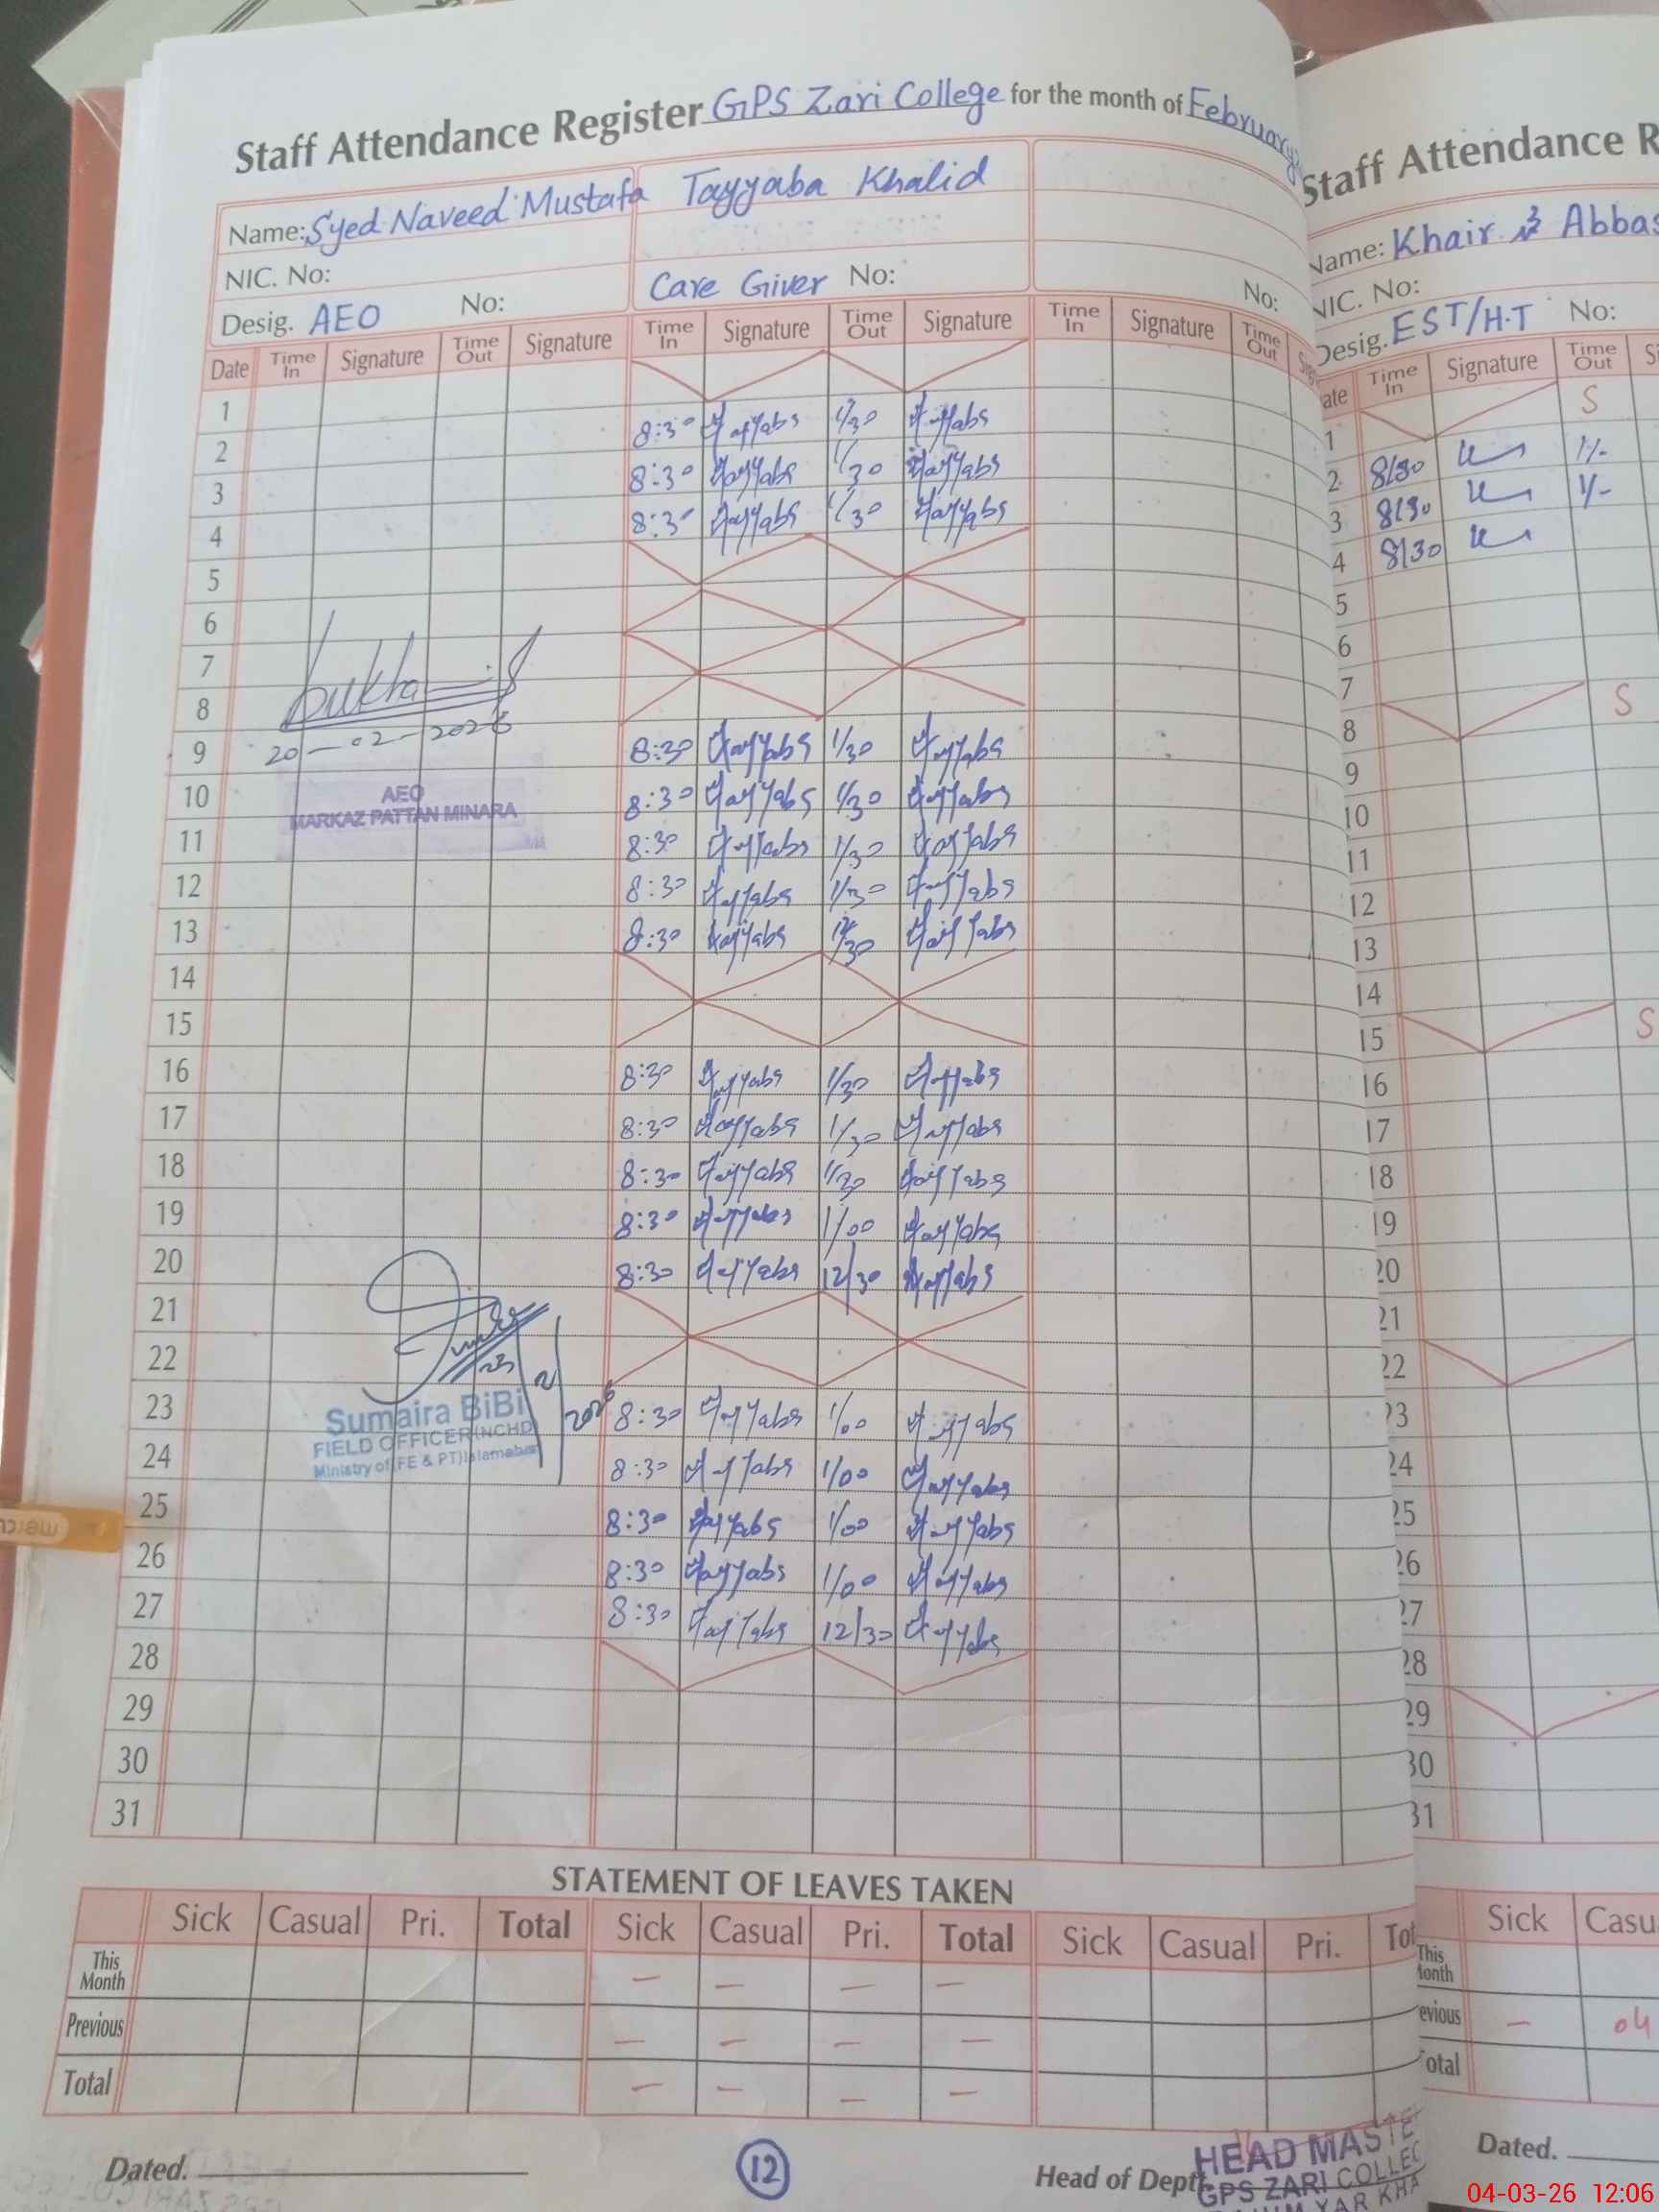 Staff Attendance Register GPS Zari College for the month of February
Name: Syed Naveed Mustafa Tayyaba Khalid
NIC. No:
Desig. AEO No: Care Giver No: No:
Date Time In Signature Time Out Signature Time In Signature Time Out Signature Time In Signature Time Out
1
2 8:30 Tayyaba 1/30 Tayyaba
3 8:30 Tayyaba 1/30 Tayyaba
4 8:30 Tayyaba 1/30 Tayyaba
5
6
7
8
20-02-2026
9 8:30 Tayyaba 1/30 Tayyaba
10 8:30 Tayyaba 1/30 Tayyaba
AEO
MARKAZ PATTAN MINARA
11 8:30 Tayyaba 1/30 Tayyaba
12 8:30 Tayyaba 1/30 Tayyaba
13 8:30 Tayyaba 12/30 Tayyaba
14
15
16 8:30 Tayyaba 1/30 Tayyaba
17 8:30 Tayyaba 1/30 Tayyaba
18 8:30 Tayyaba 1/30 Tayyaba
19 8:30 Tayyaba 1/00 Tayyaba
20 8:30 Tayyaba 12/30 Tayyaba
21
22
23/2/2026
23 8:30 Tayyaba 1/00 Tayyaba
Sumaira BiBi
FIELD OFFICER (NCHD)
Ministry of (FE & PT) Islamabad
24 8:30 Tayyaba 1/00 Tayyaba
25 8:30 Tayyaba 1/00 Tayyaba
26 8:30 Tayyaba 1/00 Tayyaba
27 8:30 Tayyaba 12/30 Tayyaba
28
29
30
31
STATEMENT OF LEAVES TAKEN
Sick Casual Pri. Total Sick Casual Pri. Total Sick Casual Pri. Tot
This Month — — — —
Previous — — — —
Total — — — —
Dated. 12 Head of Deptt.
HEAD MASTE
GPS ZARI COLLEG
YAR KHA
Staff Attendance R
Name: Khair Abbas
NIC. No:
Desig. EST/H.T No:
ate Time In Signature Time Out Si
1 S
2 8/30 1/-
3 8/30 1/-
4 8/30
5
6
7
8 S
9
10
11
12
13
14
15 S
16
17
18
19
20
21
22
23
24
25
26
27
28
29
30
31
Sick Casu
This Month
evious — 04
Total
Dated.
04-03-26 12:06